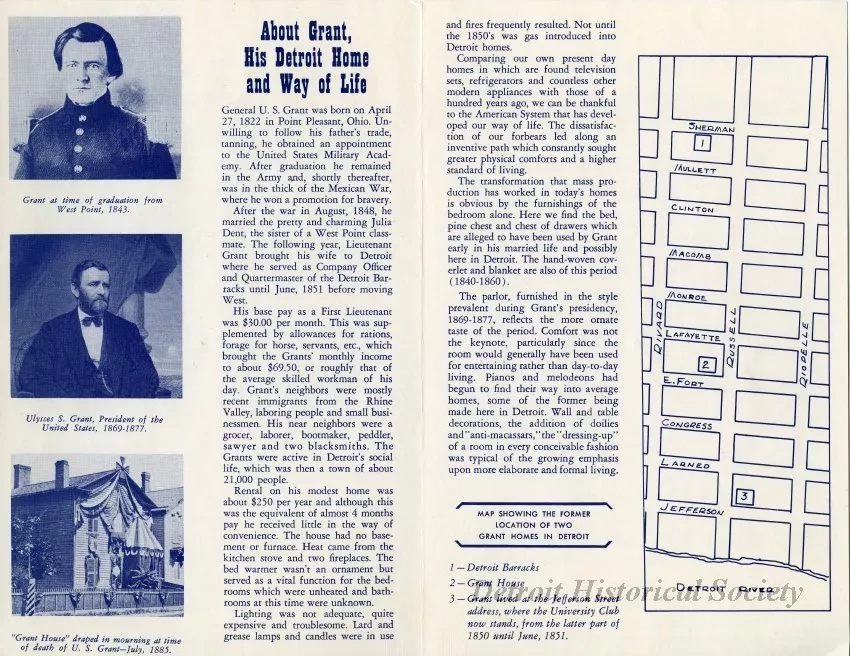 Grant at time of graduation from
West Point, 1843.
Ulysses S. Grant, President of the
United States, 1869-1877.
"Grant House" draped in mourning at time
of death of U. S. Grant—July, 1885.
About Grant,
His Detroit Home
and Way of Life
General U. S. Grant was born on April
27, 1822 in Point Pleasant, Ohio. Un-
willing to follow his father's trade,
tanning, he obtained an appointment
to the United States Military Acad-
emy. After graduation he remained
in the Army and, shortly thereafter,
was in the thick of the Mexican War,
where he won a promotion for bravery.
After the war in August, 1848, he
married the pretty and charming Julia
Dent, the sister of a West Point class-
mate. The following year, Lieutenant
Grant brought his wife to Detroit
where he served as Company Officer
and Quartermaster of the Detroit Bar-
racks until June, 1851 before moving
West.
His base pay as a First Lieutenant
was $30.00 per month. This was sup-
plemented by allowances for rations,
forage for horse, servants, etc., which
brought the Grants' monthly income
to about $69.50, or roughly that of
the average skilled workman of his
day. Grant's neighbors were mostly
recent immigrants from the Rhine
Valley, laboring people and small busi-
nessmen. His near neighbors were a
grocer, laborer, bootmaker, peddler,
sawyer and two blacksmiths. The
Grants were active in Detroit's social
life, which was then a town of about
21,000 people.
Rental on his modest home was
about $250 per year and although this
was the equivalent of almost 4 months
pay he received little in the way of
convenience. The house had no base-
ment or furnace. Heat came from the
kitchen stove and two fireplaces. The
bed warmer wasn't an ornament but
served as a vital function for the bed-
rooms which were unheated and bath-
rooms at this time were unknown.
Lighting was not adequate, quite
expensive and troublesome. Lard and
grease lamps and candles were in use
and fires frequently resulted. Not until
the 1850's was gas introduced into
Detroit homes.
Comparing our own present day
homes in which are found television
sets, refrigerators and countless other
modern appliances with those of a
hundred years ago, we can be thankful
to the American System that has devel-
oped our way of life. The dissatisfac-
tion of our forbears led along an
inventive path which constantly sought
greater physical comforts and a higher
standard of living.
The transformation that mass pro-
duction has worked in today's homes
is obvious by the furnishings of the
bedroom alone. Here we find the bed,
pine chest and chest of drawers which
are alleged to have been used by Grant
early in his married life and possibly
here in Detroit. The hand-woven cov-
erlet and blanket are also of this period
(1840-1860).
The parlor, furnished in the style
prevalent during Grant's presidency,
1869-1877, reflects the more ornate
taste of the period. Comfort was not
the keynote, particularly since the
room would generally have been used
for entertaining rather than day-to-day
living. Pianos and melodeons had
begun to find their way into average
homes, some of the former being
made here in Detroit. Wall and table
decorations, the addition of doilies
and "anti-macassars," the "dressing-up"
of a room in every conceivable fashion
was typical of the growing emphasis
upon more elaborate and formal living.
MAP SHOWING THE FORMER
LOCATION OF TWO
GRANT HOMES IN DETROIT
1 — Detroit Barracks
2 — Grant House
3 — Grant lived at the Jefferson Street
address, where the University Club
now stands, from the latter part of
1850 until June, 1851.
SHERMAN
1
MULLETT
CLINTON
MACOMB
MONROE
RIVARD
RUSSELL
RIOPELLE
LAFAYETTE
2
E. FORT
CONGRESS
LARNED
3
JEFFERSON
DETROIT RIVER
Detroit Historical Society